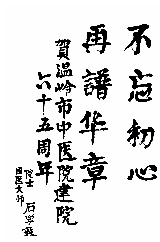 不忘初心
再谱华章
贺温岭市中医院建院
六十五周年
院士
国医大师
石学敏